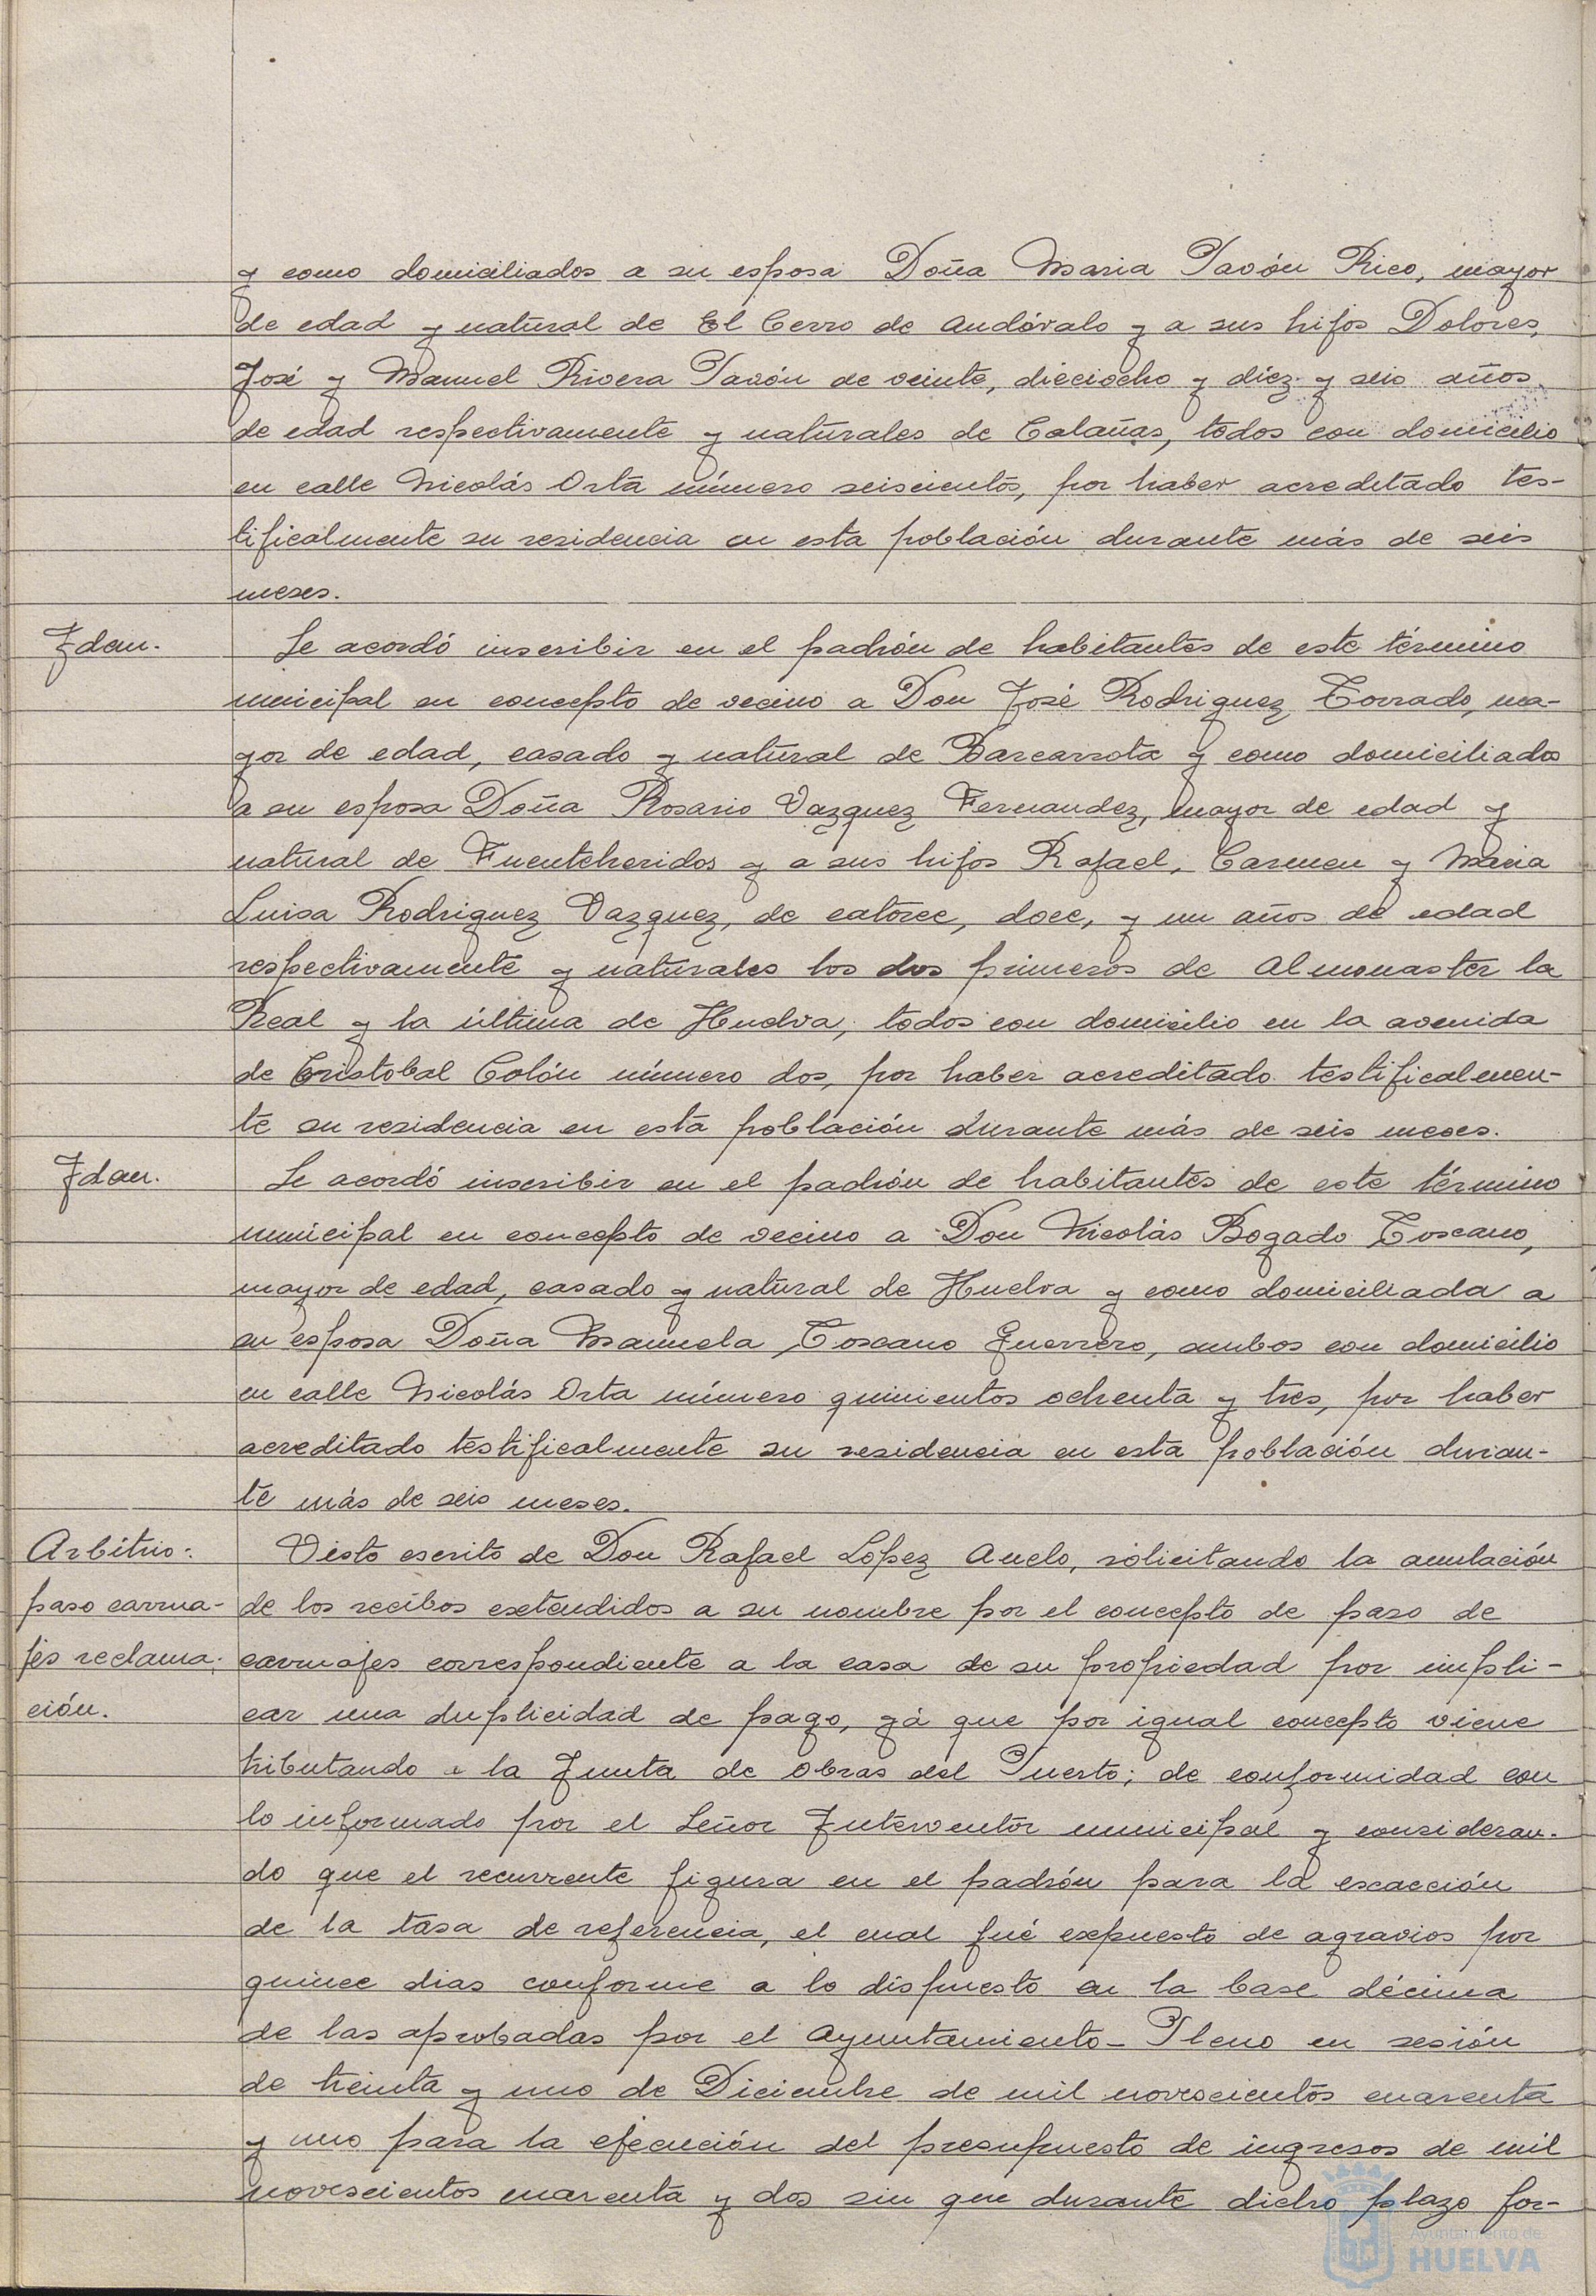 y como domiciliados a su esposa Doña Maria Pavón Rico, mayor
de edad y natural de El Cerro de Andévalo y a sus hijos Dolores,
José y Manuel Rivera Pavón de veinte, dieciocho y diez y seis años
de edad respectivamente y naturales de Calañas, todos con domicilio
en calle Nicolás Orta número seiscientos, por haber acreditado tes-
tificalmente su residencia en esta población durante más de seis
meses.
Idem.
Se acordó inscribir en el padrón de habitantes de este término
municipal en concepto de vecino a Don José Rodriguez Torrado, ma-
yor de edad, casado y natural de Barcarrota y como domiciliados
a su esposa Doña Rosario Vazquez Fernandez, mayor de edad y
natural de Fuenteheridos y a sus hijos Rafael, Carmen y Maria
Luisa Rodriguez Vazquez, de catorce, doce, y un años de edad
respectivamente y naturales los dos primeros de Almonaster la
Real y la última de Huelva, todos con domicilio en la avenida
de Cristobal Colón número dos, por haber acreditado testificalmen-
te su residencia en esta población durante más de seis meses.
Idem.
Se acordó inscribir en el padrón de habitantes de este término
municipal en concepto de vecino a Don Nicolás Bogado Toscano,
mayor de edad, casado y natural de Huelva y como domiciliada a
su esposa Doña Manuela Toscano Guerrero, ambos con domicilio
en calle Nicolás Orta número quinientos ochenta y tres, por haber
acreditado testificalmente su residencia en esta población duran-
te más de seis meses.
Arbitrio:
paso carrua-
jes reclama-
ción.
Visto escrito de Don Rafael López Anelo, solicitando la anulación
de los recibos extendidos a su nombre por el concepto de paso de
carruajes correspondiente a la casa de su propiedad por impli-
car una duplicidad de pago, yá que por igual concepto viene
tributando a la Junta de Obras del Puerto; de conformidad con
lo informado por el Señor Interventor municipal y consideran-
do que el recurrente figura en el padrón para la exacción
de la tasa de referencia, el cual fué expuesto de agravios por
quince dias conforme a lo dispuesto en la base décima
de las aprobadas por el Ayuntamiento-Pleno en sesión
de treinta y uno de Diciembre de mil novescientos cuarenta
y uno para la ejecución del presupuesto de ingresos de mil
novescientos cuarenta y dos sin que durante dicho plazo for-
Ayuntamiento de
HUELVA